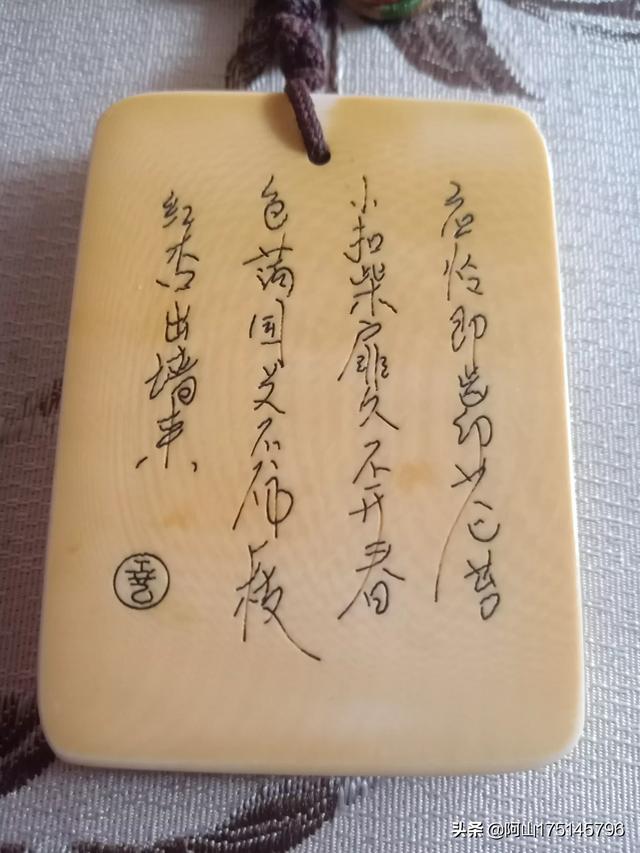 应怜即齿印
小扣柴扉久不开春
色满园关不
红杏出墙来
头条 @阿山175145796